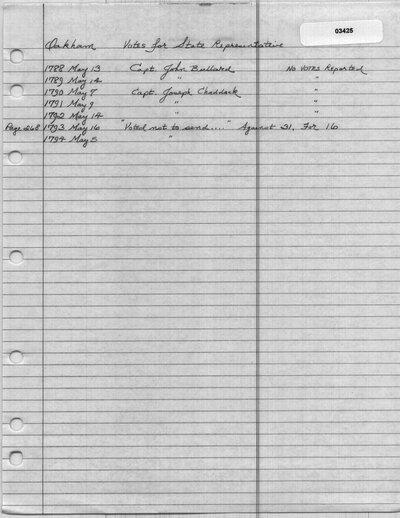 03425
Oakham Votes for State Representative
1788 May 13 Capt. John Bullard No Votes Reported
1789 May 14 " "
1790 May 7 Capt. Joseph Chaddock "
1791 May 9 " "
1792 May 14 " "
Page 268 1793 May 16 "Voted not to send...." Against 31, For 16
1794 May 5 "